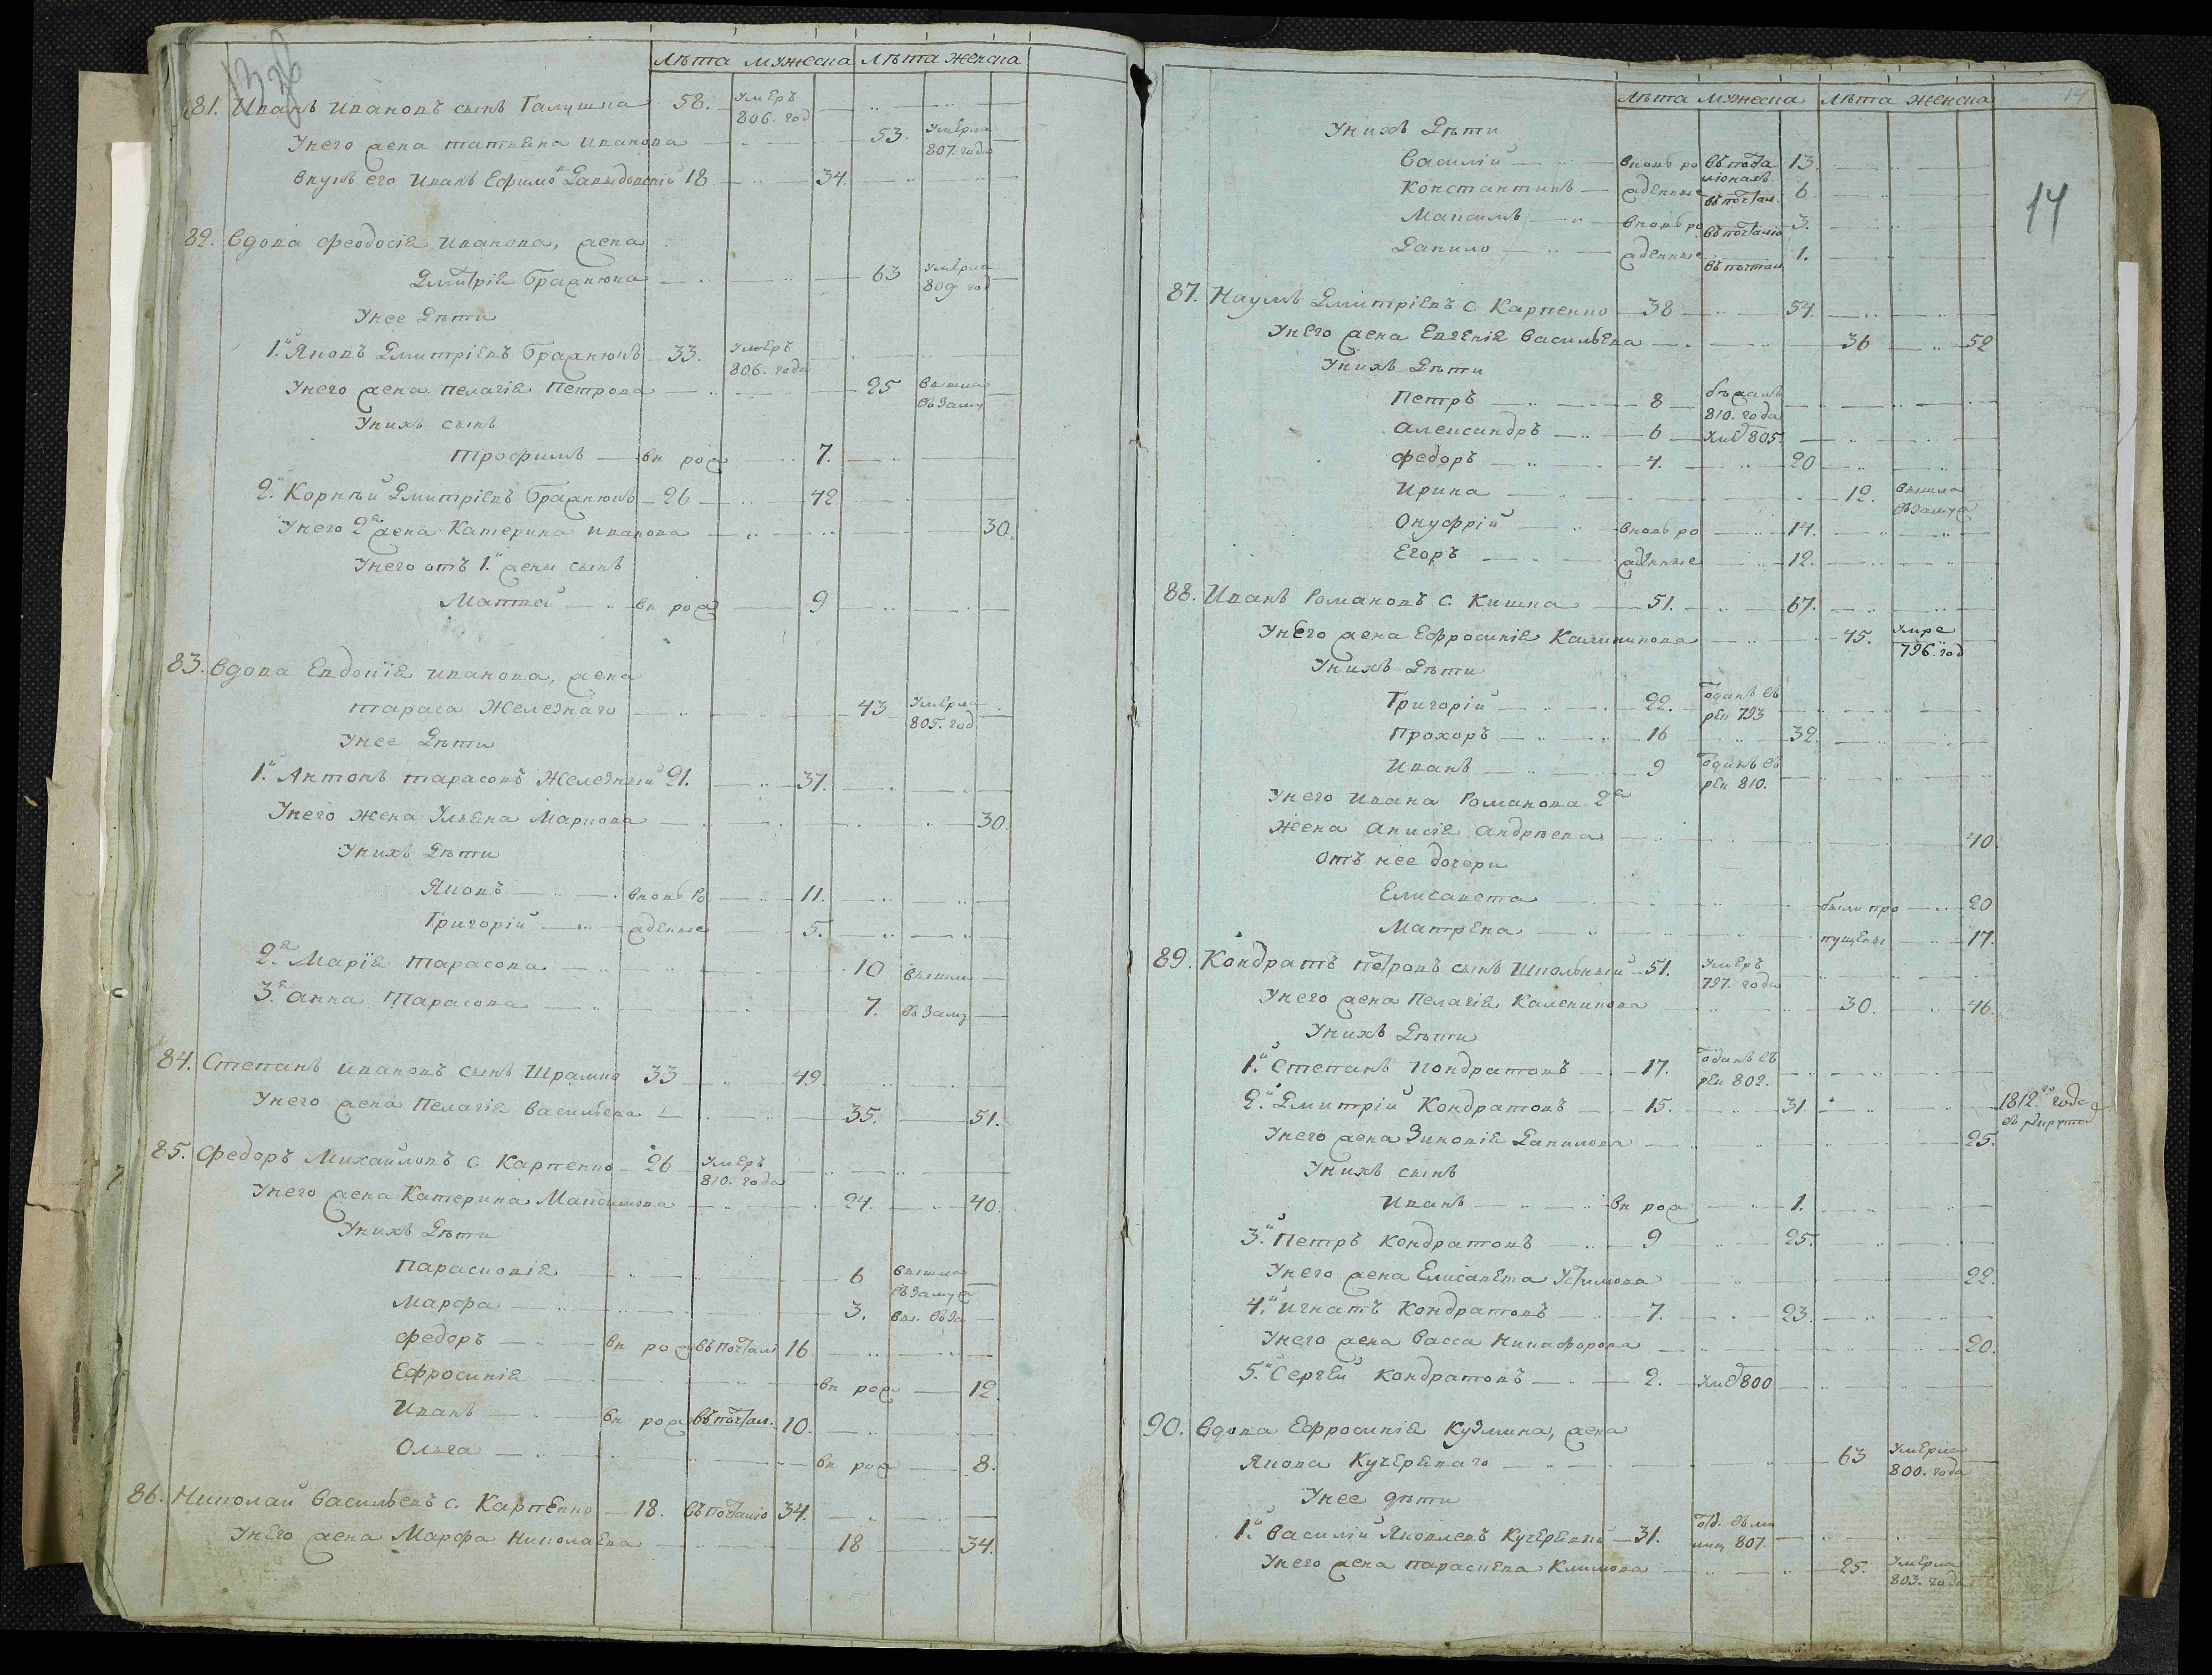 Лѣта мужеска Лѣта женска
81. Иванъ Ивановъ сынъ Галушка 58. умеръ 806. год
У него жена Татиена Иванова 53. умерла 807. года
внукъ его Иванъ Ефимовъ Давыдовскій 18 34.
82. Вдова Феодосія Иванова, жена
Дмитрія Бражнюка 63 умерла 809 год
У нее Дѣти
1.й Яковъ Дмитріевъ Бражнюкъ 33. умеръ 806. года
У него жена Пелагія Петрова 25 вышла въ замуж
У нихъ сынъ
Трофимъ вн рож 7.
2.й Корнѣй Дмитріевъ Бражнюкъ 26 42
У него 2я жена Катерина Иванова 30.
У него отъ 1.й жены сынъ
Матвей вн рож 9
83. Вдова Евдокія Иванова, жена
Тараса Железнаго 43 умерла 805. год
У нее Дѣти
1.й Антонъ Тарасовъ Железный 21. 37.
У него жена Ульена Маркова 30.
У нихъ Дѣти
Яковъ вновь ро 11.
Григорій жденые 5.
2.я Марія Тарасова 10 вышли
3.я Анна Тарасова 7. въ замуж
84. Степанъ Ивановъ сынъ Шрамко 33 49.
У него жена Пелагія Васильева 35. 51.
85. Федоръ Михайловъ с. Карпенко 26 умеръ 810. года
У него жена Катерина Максимова 24. 40.
У нихъ Дѣти
Парасковія 6 вышла въ замуж
Марфа 3. вы. въ за
Федоръ вн рож въ почталі 16
Ефросинія вн рож 12
Иванъ вн рож въ почтал. 10.
Ольга вн рож 8.
86. Николай Васильевъ с. Карпенко 18. въ почталіо 34.
У него жена Марфа Николаева 18 34.
14
Лѣта мужеска Лѣта женска
14
У нихъ Дѣти
Василій вновь ро въ почта ліонахъ 13
Константинъ жденные въ почтал. 6
Максимъ вновь ро въ почталіо 3.
Данило жденные въ почтал 1.
87. Наумъ Дмитріевъ с. Карпенко 38 54.
У него жена Евгенія Васильева 36 52
У нихъ Дѣти
Петръ 8 бѣжалъ 810. года
Александръ 6 уме 805.
Федоръ 4. 20
Ирина 12. вышла въ замуж
Онуфрій вновь ро 14.
Егоръ жденные 12.
88. Иванъ Романовъ с. Кишка 51. 67.
У него жена Ефросинія Калиникова 45. умре 796. год
У нихъ Дѣти
Григорій 22. отданъ въ рек 793
Прохоръ 16 32.
Иванъ 9 отданъ въ рек 810.
У него Ивана Романова 2я
жена Анисія Андрѣева 40.
Отъ нее дочери
Елисавета были про 20
Матрена пущены 17.
89. Кондратъ Петровъ сынъ Школьный 51. умеръ 797. года
У него жена Пелагія Каленикова 30. 46.
У нихъ Дѣти
1.й Степанъ Кондратовъ 17. отданъ въ рек 802.
2.й Дмитрій Кондратовъ 15. 31. 1812.го года въ рекруты
У него жена Зиновія Данилова 25.
У нихъ сынъ
Иванъ вн рож 1.
3.й Петръ Кондратовъ 9 25.
У него жена Елисавета Устимова 22.
4.й Игнатъ Кондратовъ 7. 23.
У него жена Васса Никифорова 20.
5.й Сергей Кондратовъ 2. уме 800
90. Вдова Ефросинія Кузмина, жена
Якова Кучереваго 63 умерла 800. года
У нее дѣти
1.й Василій Яковлевъ Кучеревый 31. отд. въ ми лиц 807.
У него жена Параскева Климова 25. умерла 803. года